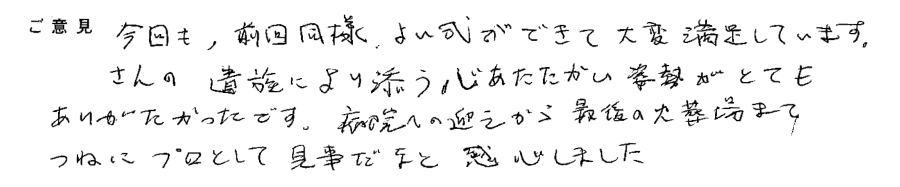 ご意見 今回も，前回同様，よい式ができて大変満足しています。
さんの 遺族により添う心あたたかい姿勢がとても
ありがたかったです。病院への迎えから最後の火葬場まで
つねにプロとして見事だなと感心しました